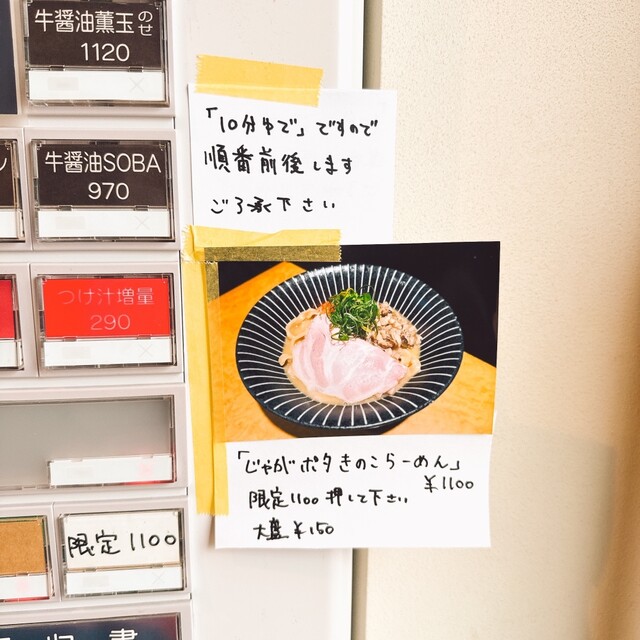 牛醤油薫玉のせ
1120
牛醤油SOBA
970
つけ汁増量
290
限定1100
「10分ゆで」ですので
順番前後します
ご了承下さい
「じゃがポタきのこらーめん」
¥1100
限定1100押して下さい
大盛¥150